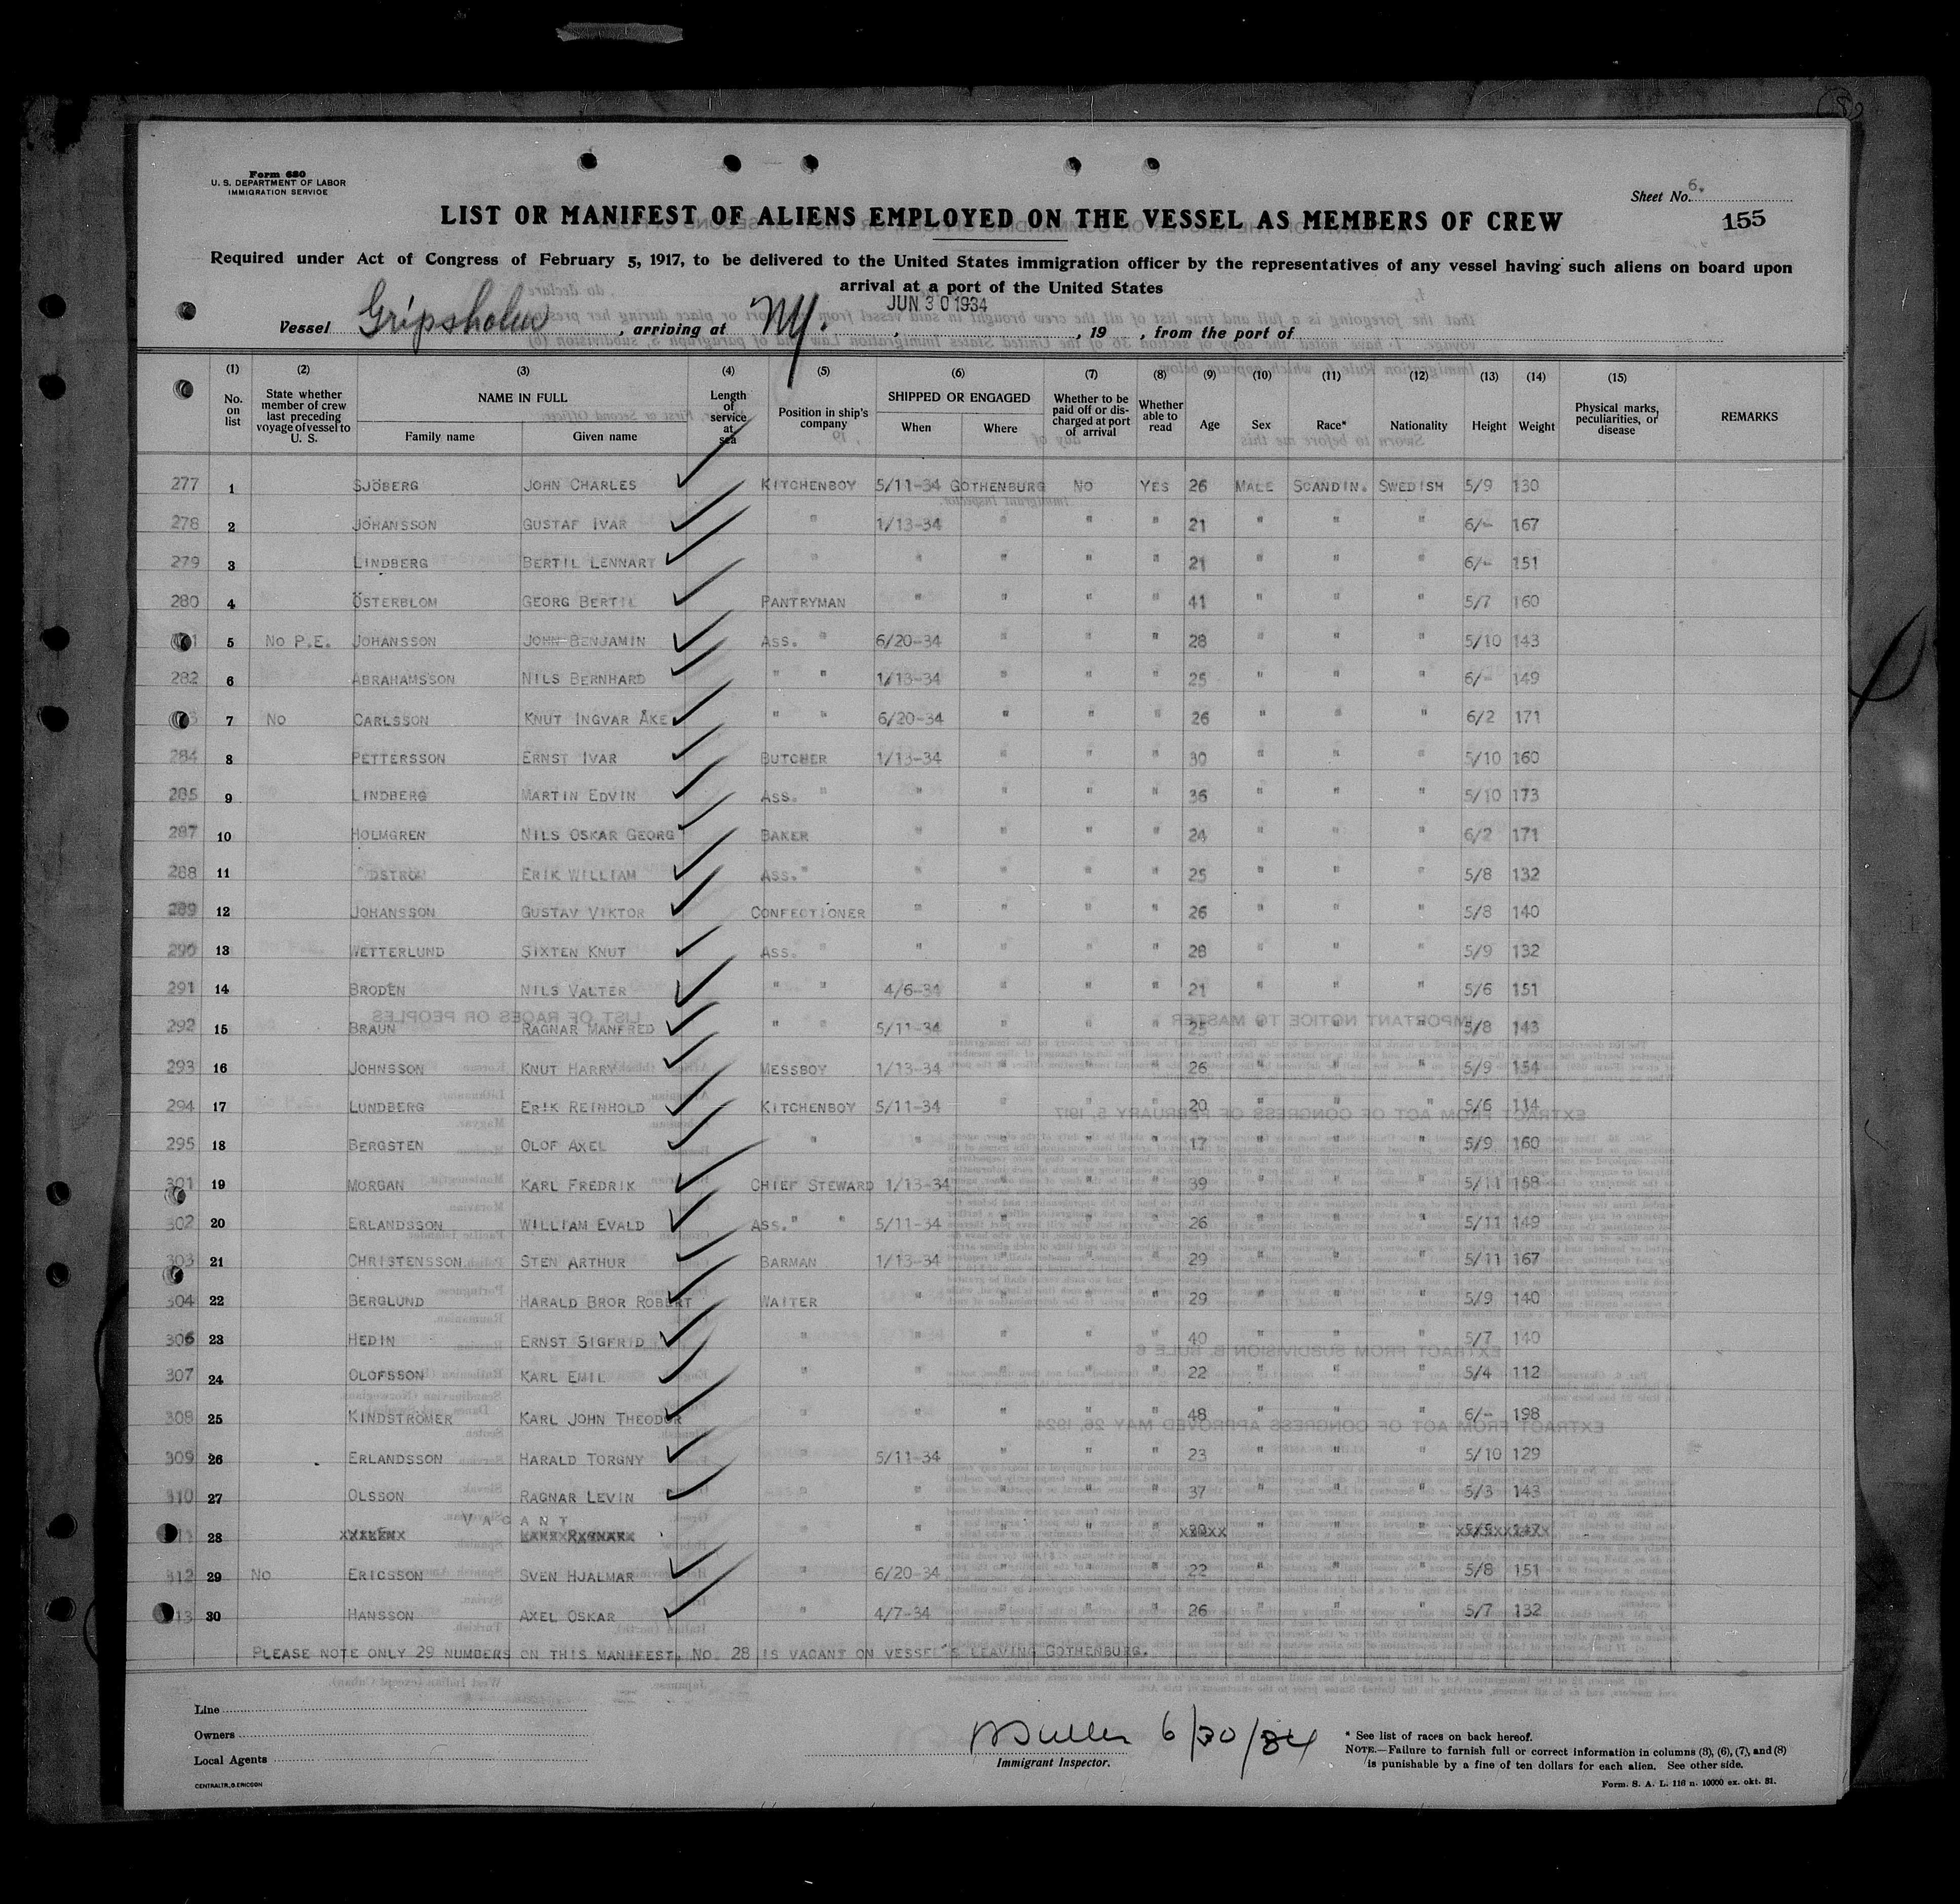 Form 680
U. S. DEPARTMENT OF LABOR
IMMIGRATION SERVICE
Sheet No. 6.
155
LIST OR MANIFEST OF ALIENS EMPLOYED ON THE VESSEL AS MEMBERS OF CREW
Required under Act of Congress of February 5, 1917, to be delivered to the United States immigration officer by the representatives of any vessel having such aliens on board upon
arrival at a port of the United States
Vessel Gripsholm, arriving at NY. JUN 30 1934, 19 , from the port of
(1) No. on list (2) State whether member of crew last preceding voyage of vessel to U. S. (3) NAME IN FULL Family name Given name (4) Length of service at sea (5) Position in ship's company (6) SHIPPED OR ENGAGED When Where (7) Whether to be paid off or discharged at port of arrival (8) Whether able to read (9) Age (10) Sex (11) Race* (12) Nationality (13) Height (14) Weight (15) Physical marks, peculiarities, or disease REMARKS
277 1 SJÖBERG JOHN CHARLES KITCHENBOY 5/11-34 GOTHENBURG NO YES 26 MALE SCANDIN. SWEDISH 5/9 130
278 2 JOHANSSON GUSTAF IVAR " 1/13-34 " " " 21 " " " 6/- 167
279 3 LINDBERG BERTIL LENNART " " " " " 21 " " " 6/- 151
280 4 ÖSTERBLOM GEORG BERTIL PANTRYMAN " " " " 41 " " " 5/7 160
5 NO P.E. JOHANSSON JOHN BENJAMIN ASS. " 6/20-34 " " " 28 " " " 5/10 143
282 6 ABRAHAMSSON NILS BERNHARD " " 1/13-34 " " " 25 " " " 6/- 149
7 NO CARLSSON KNUT INGVAR ÅKE " " 6/20-34 " " " 26 " " " 6/2 171
284 8 PETTERSSON ERNST IVAR BUTCHER 1/13-34 " " " 30 " " " 5/10 160
285 9 LINDBERG MARTIN EDVIN ASS. " " " " " 36 " " " 5/10 173
287 10 HOLMGREN NILS OSKAR GEORG BAKER " " " " 24 " " " 6/2 171
288 11 ERIK WILLIAM ASS. " " " " " 25 " " " 5/8 132
289 12 JOHANSSON GUSTAV VIKTOR CONFECTIONER " " " " 26 " " " 5/8 140
290 13 WETTERLUND SIXTEN KNUT ASS. " " " " " 28 " " " 5/9 132
291 14 BRODEN NILS VALTER " " 4/6-34 " " " 21 " " " 5/6 151
292 15 BRAUN RAGNAR MANFRED " 5/11-34 " " " 25 " " " 5/8 143
293 16 JOHNSSON KNUT HARRY MESSBOY 1/13-34 " " " 26 " " " 5/9 154
294 17 LUNDBERG ERIK REINHOLD KITCHENBOY 5/11-34 " " " 20 " " " 5/6 114
295 18 BERGSTEN OLOF AXEL " " " " " 17 " " " 5/9 160
301 19 MORGAN KARL FREDRIK CHIEF STEWARD 1/13-34 " " " 39 " " " 5/11 158
302 20 ERLANDSSON WILLIAM EVALD ASS. " " 5/11-34 " " " 26 " " " 5/11 149
303 21 CHRISTENSSON STEN ARTHUR BARMAN 1/13-34 " " " 29 " " " 5/11 167
304 22 BERGLUND HARALD BROR ROBERT WAITER " " " " 29 " " " 5/9 140
306 23 HEDIN ERNST SIGFRID " " " " " 40 " " " 5/7 140
307 24 OLOFSSON KARL EMIL " " " " " 22 " " " 5/4 112
308 25 KINDSTRÖMER KARL JOHN THEODOR " " " " " 48 " " " 6/- 198
309 26 ERLANDSSON HARALD TORGNY " 5/11-34 " " " 23 " " " 5/10 129
310 27 OLSSON RAGNAR LEVIN " " " " " 37 " " " 5/3 143
28 VACANT " " " " " " " "
312 29 NO ERICSSON SVEN HJALMAR " 6/20-34 " " " 22 " " " 5/8 151
30 HANSSON AXEL OSKAR " 4/7-34 " " " 26 " " " 5/7 132
PLEASE NOTE ONLY 29 NUMBERS ON THIS MANIFEST. NO. 28 IS VACANT ON VESSEL'S LEAVING GOTHENBURG.
Line
Owners
Local Agents
CENTRALTR., G. ERICSON
6/30/34
Immigrant Inspector.
* See list of races on back hereof.
NOTE.—Failure to furnish full or correct information in columns (3), (6), (7), and (8)
is punishable by a fine of ten dollars for each alien. See other side.
Form. S. A. L. 116 n. 10000 ex. okt. 31.